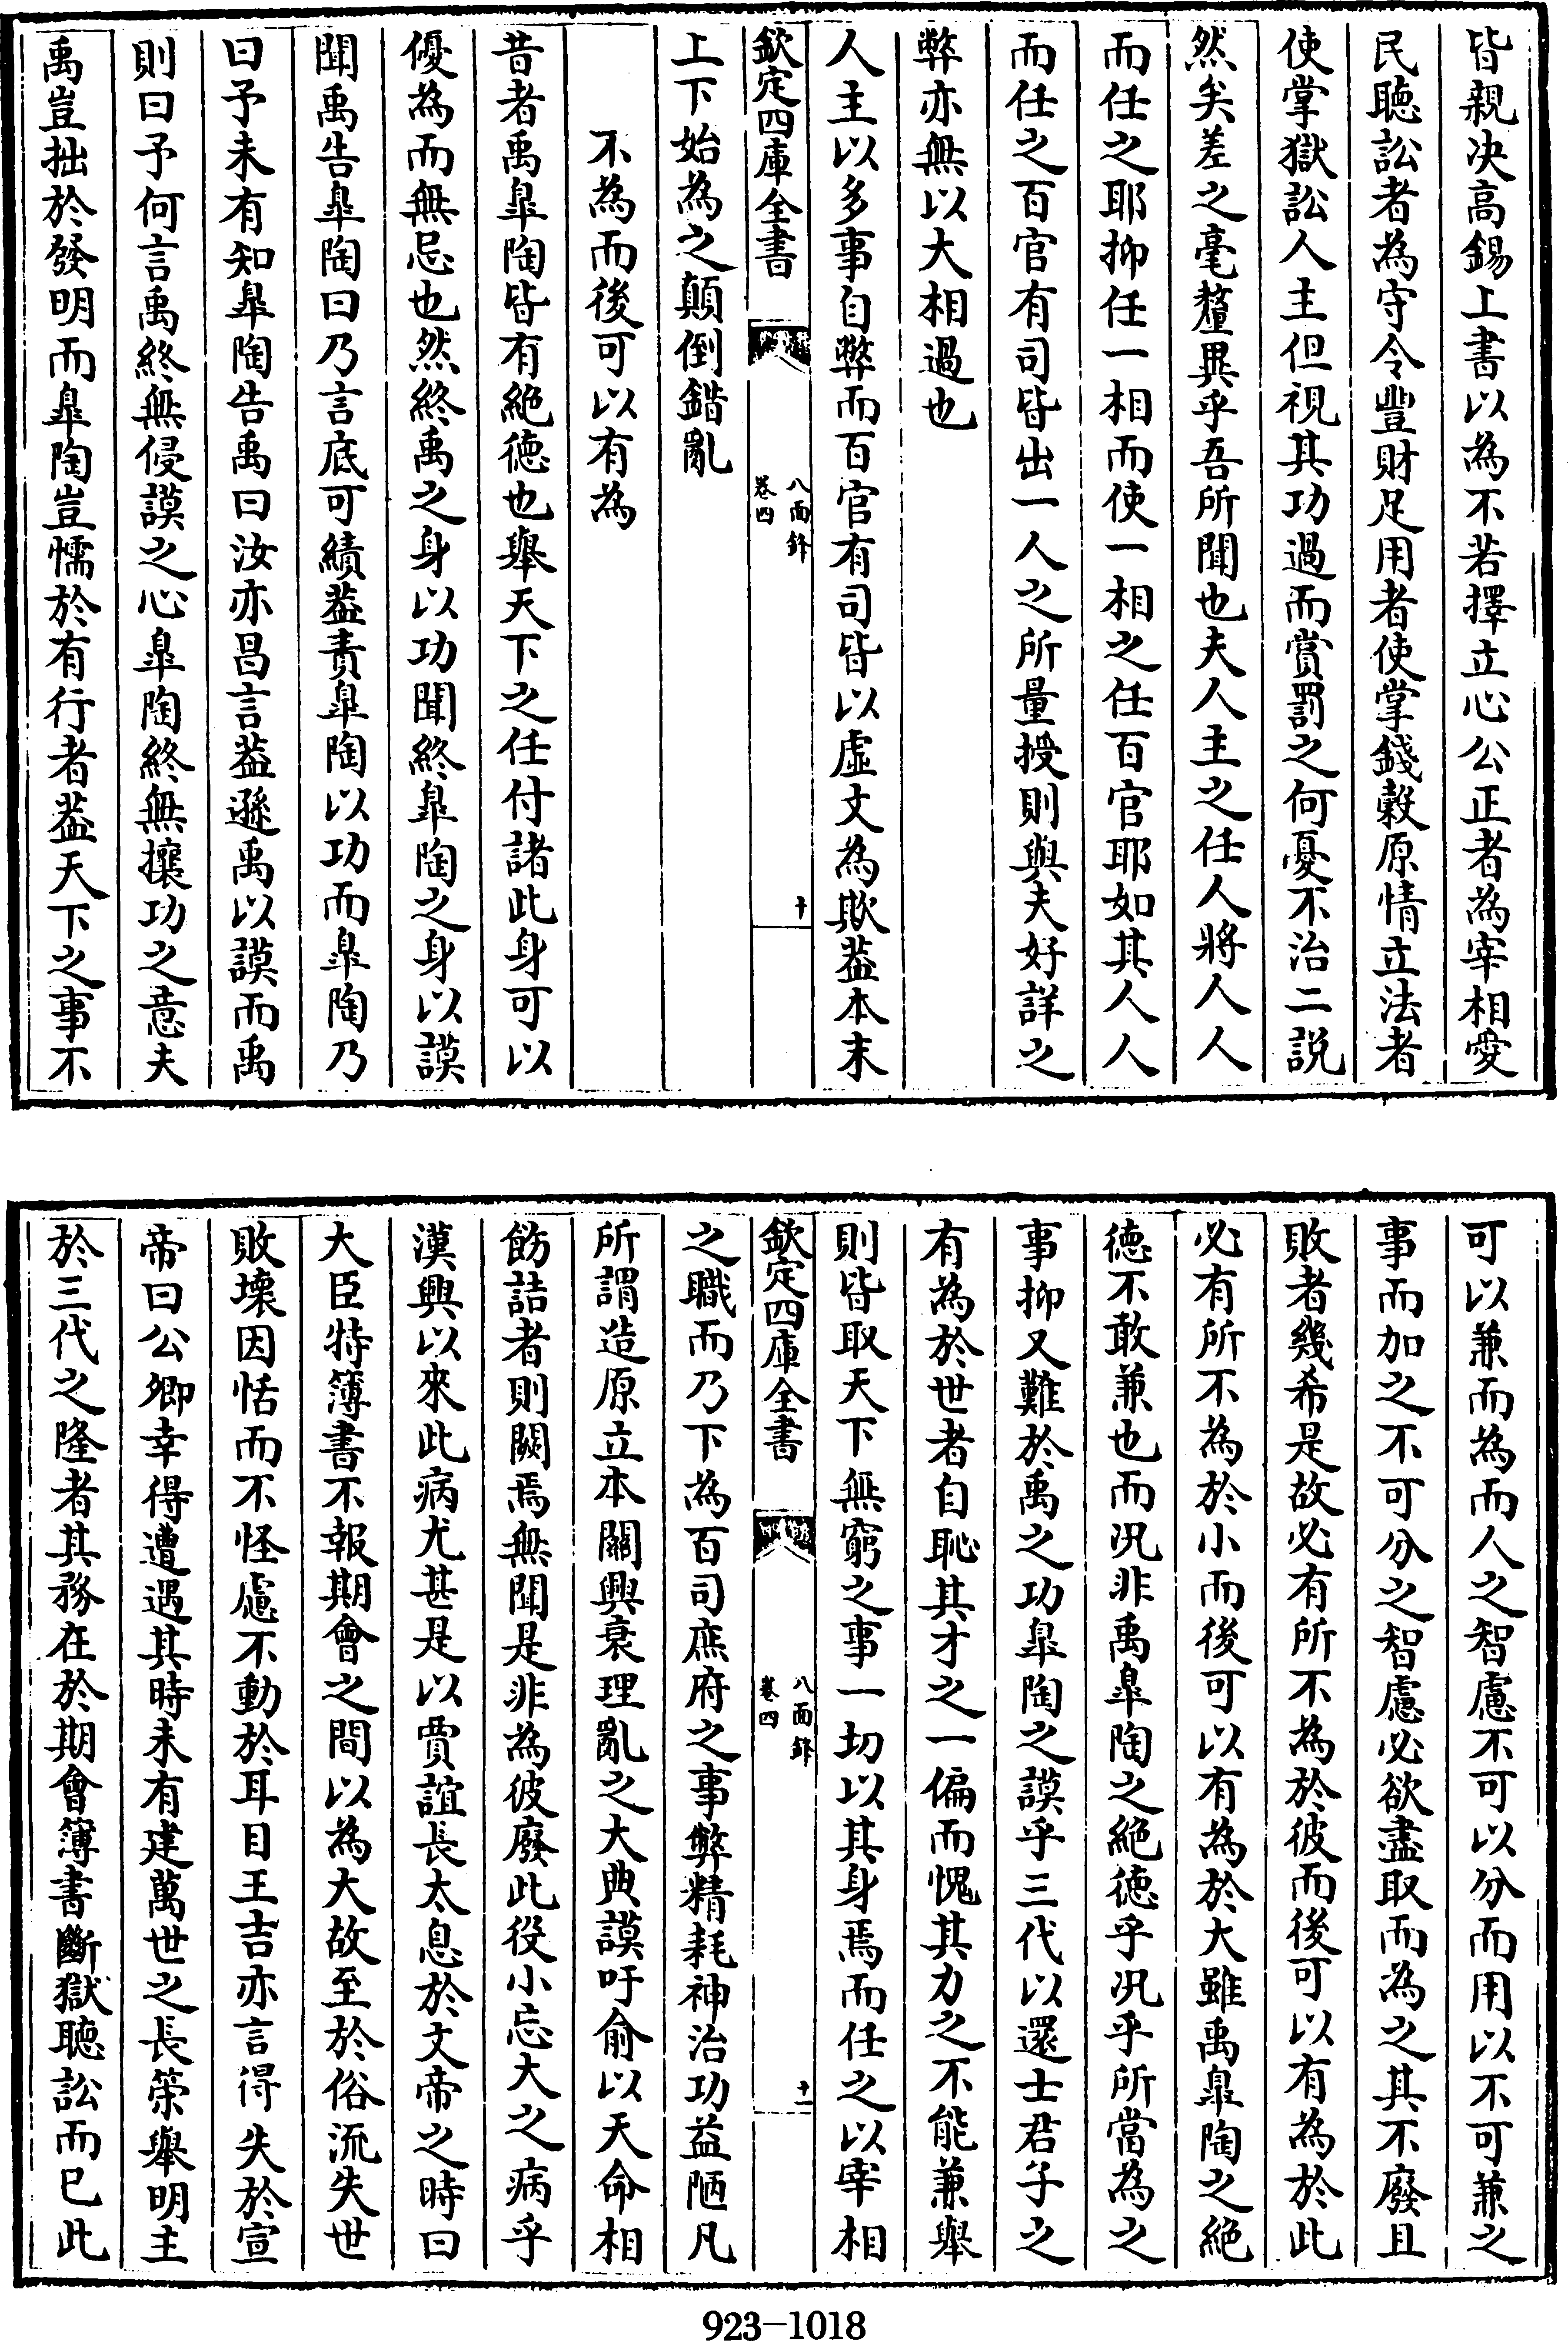 皆親决高錫上書以為不若擇立心公正者為宰相愛
民聽訟者為守令豐財足用者使掌錢穀原情立法者
使掌獄訟人主但視其功過而賞罰之何憂不治二說
然矣差之毫釐異乎吾所聞也夫人主之任人將人人
而任之耶抑任一相而使一相之任百官耶如其人人
而任之百官有司皆出一人之所量授則與夫好詳之
弊亦無以大相過也
人主以多事自弊而百官有司皆以虛文為欺葢本末
欽定四庫全書
八面鋒
卷四
十
上下始為之顛倒錯亂
不為而後可以有為
昔者禹臯陶皆有絶德也舉天下之任付諸此身可以
優為而無忌也然終禹之身以功聞終臯陶之身以謨
聞禹告臯陶曰乃言底可績葢責臯陶以功而臯陶乃
曰予未有知臯陶告禹曰汝亦昌言葢遜禹以謨而禹
則曰予何言禹終無侵謨之心臯陶終無攘功之意夫
禹豈拙於發明而臯陶豈懦於有行者葢天下之事不
可以兼而為而人之智慮不可以分而用以不可兼之
事而加之不可分之智慮必欲盡取而為之其不廢且
敗者幾希是故必有所不為於彼而後可以有為於此
必有所不為於小而後可以有為於大雖禹臯陶之絶
德不敢兼也而况非禹臯陶之絶德乎况乎所當為之
事抑又難於禹之功臯陶之謨乎三代以還士君子之
有為於世者自恥其才之一偏而愧其力之不能兼舉
則皆取天下無窮之事一切以其身焉而任之以宰相
欽定四庫全書
八面鋒
卷四
十一
之職而乃下為百司庶府之事弊精耗神治功益陋凡
所謂造原立本關興衰理亂之大典謨吁俞以天命相
飭詰者則闕焉無聞是非為彼廢此役小忘大之病乎
漢興以來此病尤甚是以賈誼長太息於文帝之時曰
大臣特簿書不報期會之間以為大故至於俗流失世
敗壞因恬而不怪慮不動於耳目王吉亦言得失於宣
帝曰公卿幸得遭遇其時未有建萬世之長策舉明主
於三代之隆者其務在於期會簿書斷獄聽訟而已此
923-1018